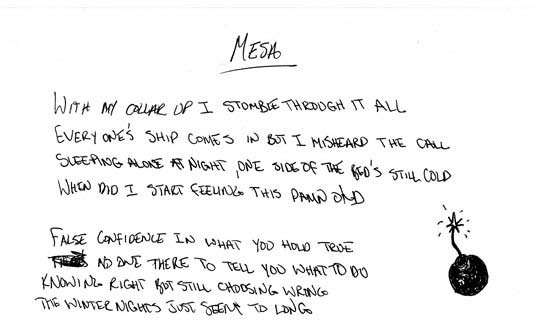 MESA
WITH MY COLLAR UP I STOMBLE THROUGH IT ALL
EVERYONE'S SHIP COMES IN BUT I MISHEARD THE CALL
SLEEPING ALONE AT NIGHT, ONE SIDE OF THE BED'S STILL COLD
WHEN DID I START FEELING THIS DAMN OLD
FALSE CONFIDENCE IN WHAT YOU HOLD TRUE
NO ONE THERE TO TELL YOU WHAT TO DO
KNOWING RIGHT BUT STILL CHOOSING WRONG
THE WINTER NIGHTS JUST SEEM TO LONG